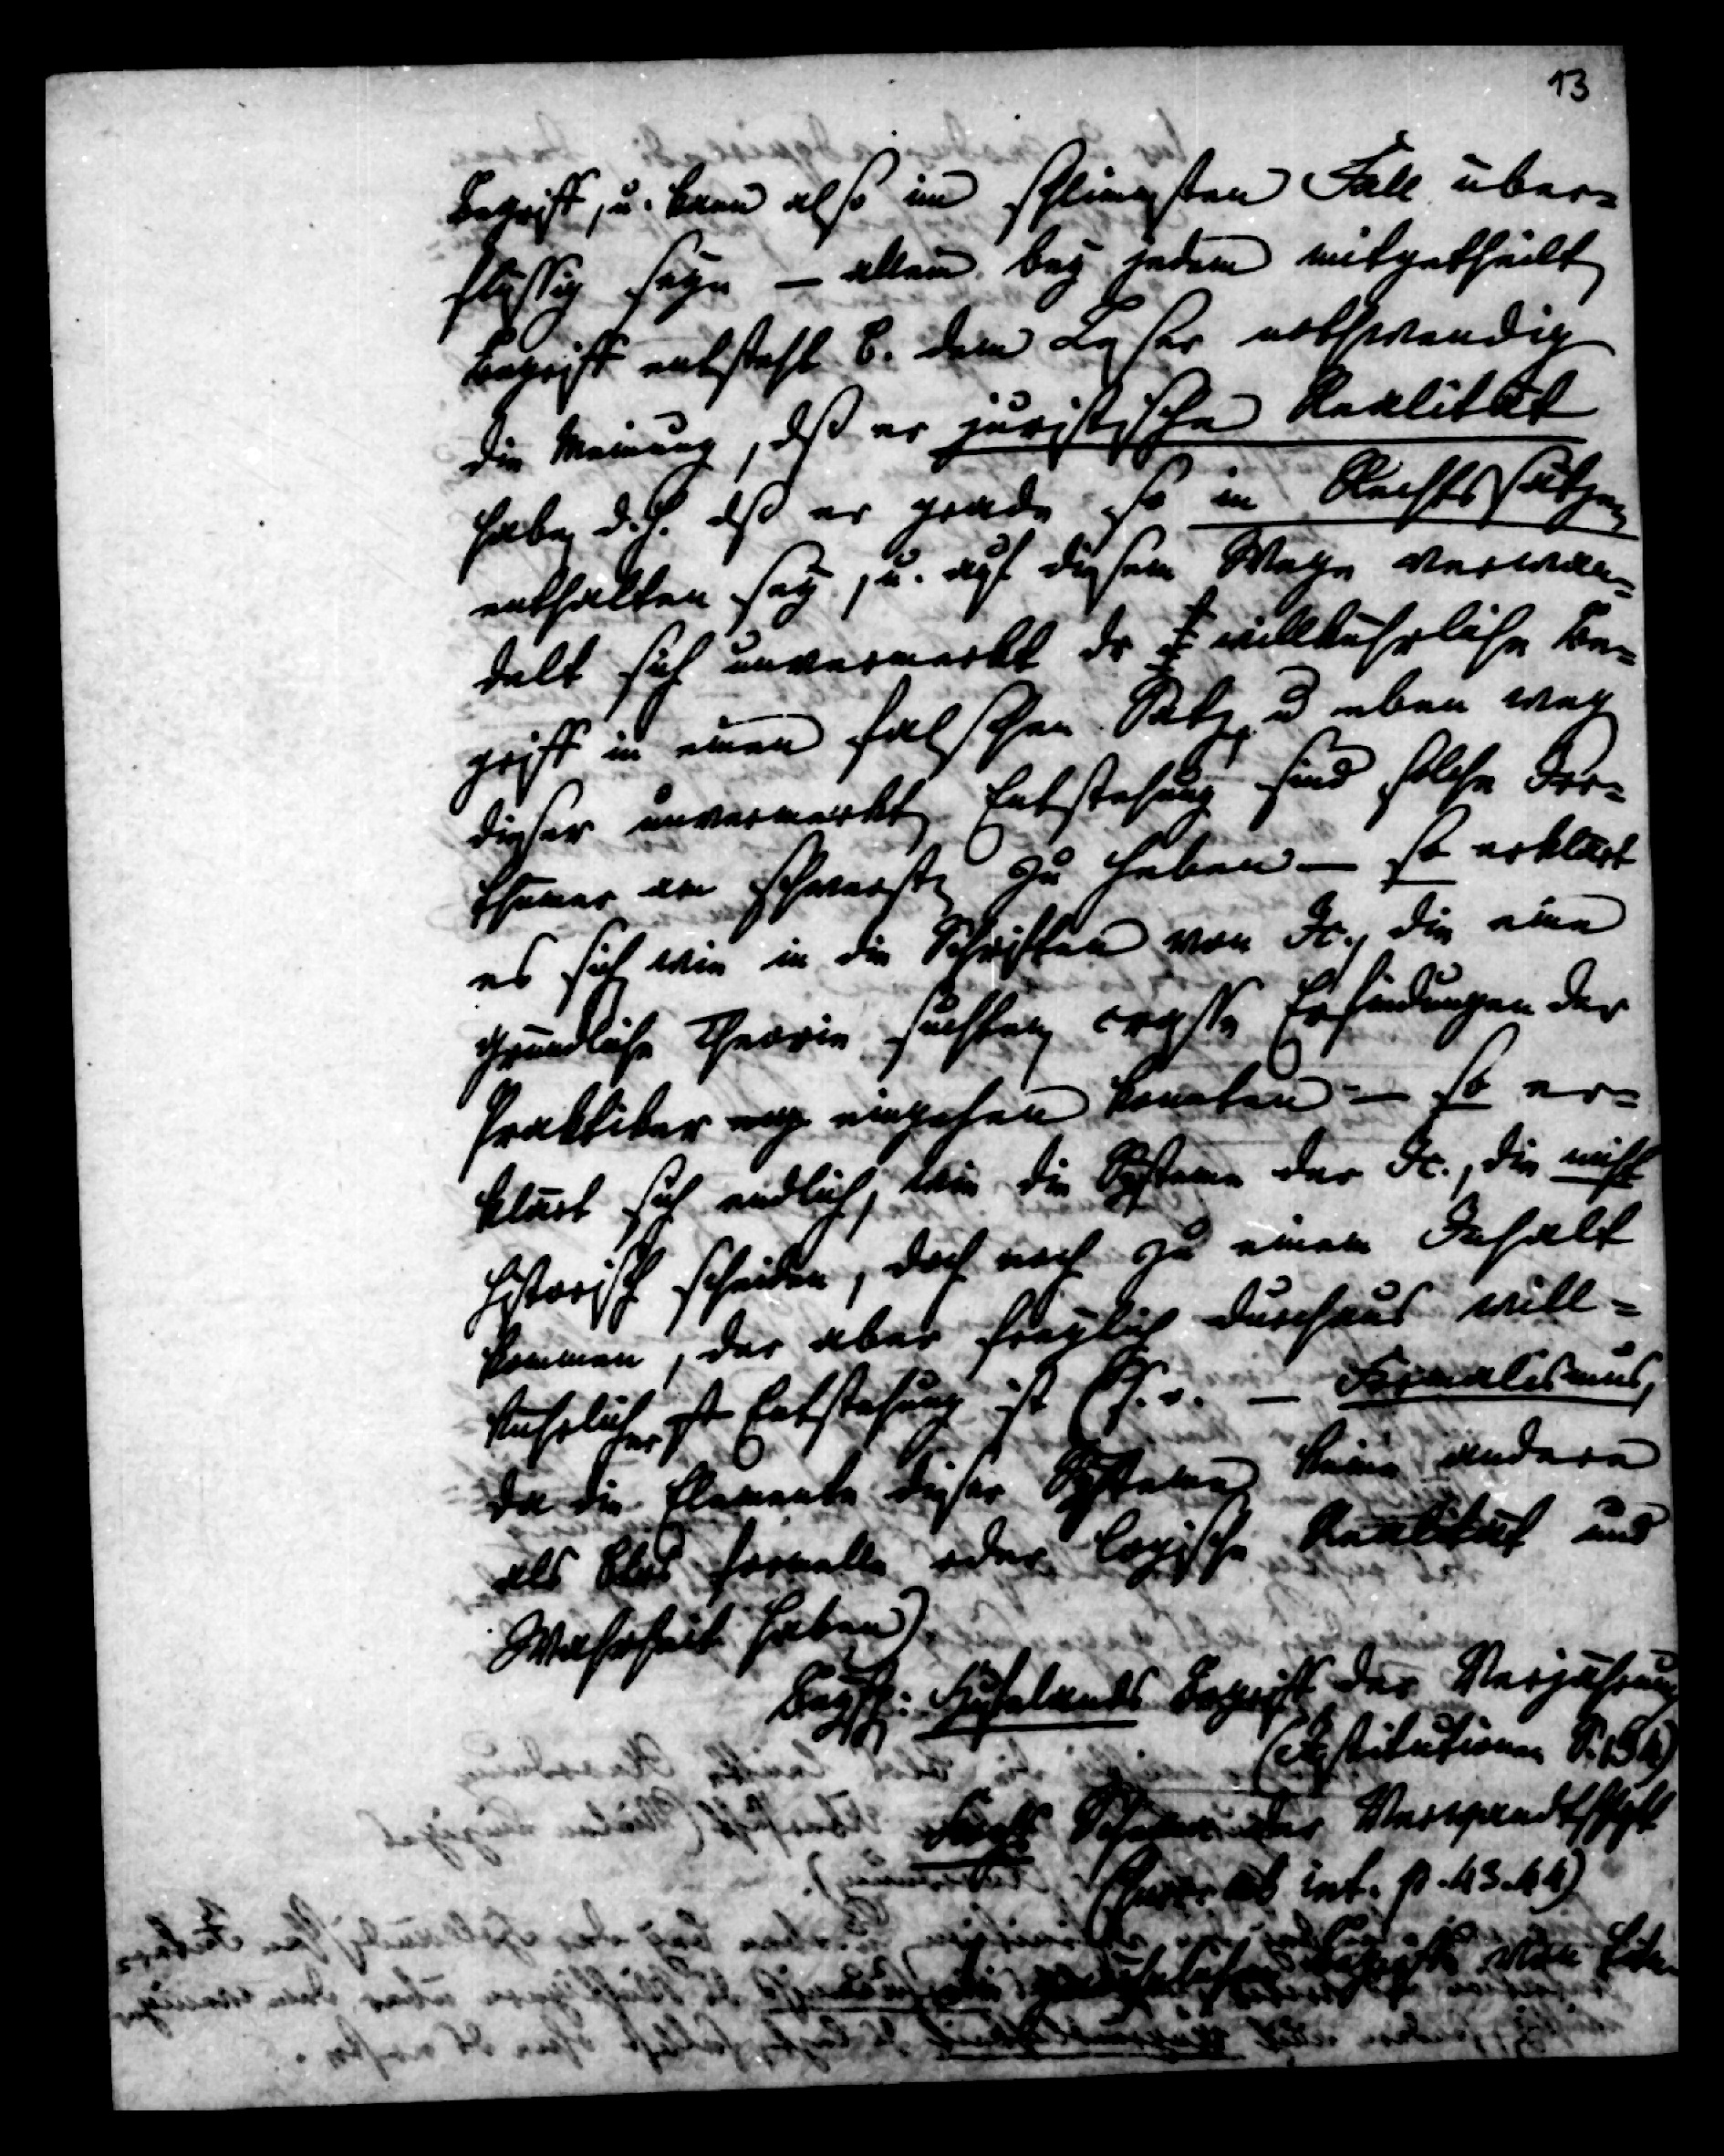 13
Begriff, u. kann also im schlimsten Fall über=
flüssig seyn – allein bey jedem mitgetheilt
Begriff entsteht b. dem Leser nothwendig
die Meinung, dß er juristische Realität
habe, d.h. dß er grade so in Rechtssätzen
enthalten sey, u. auf diesem Wege verwan=
delt sich unvermerkt der willkührliche Be=
griff in einen falschen Satz, u eben weg
dieser unvermerkt Entstehung sind solche Irr=
thümer am schwerst zu heben – so erklärt
es sich, wie in die Schriften von Jc., die eine
gründliche Theorie suchten, crasse Erfindungen der
Praktiker eingehen konnten – so er=
klärt sich endlich, wie die Systeme der Jc., die nicht
historisch scheiden, doch noch zu einem Inhalt
kommen, der aber freylich durchaus will=
kührlicher Entstehung ist – Formalismus,
da die Elemente dieser Systeme keine andere
als blos formelle oder logische Realität und
Wahrheit haben)
Beysp: Hufelands Begriff der Verjährung
(Institutionen S. 154)
Schema der Verwandtschaft
ab int. p. 43.44)
Die gewöhnlichen Begriffe von